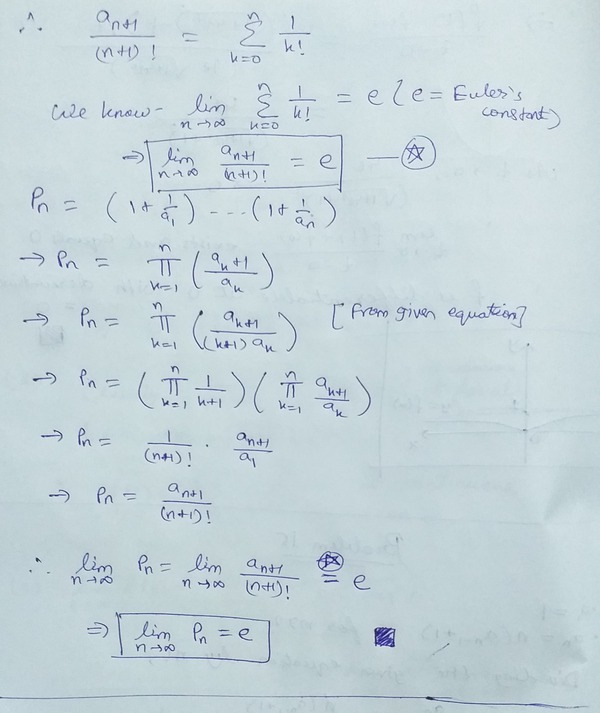 ∴ a_{n+1}/(n+1)! = ∑_{k=0}^{n} 1/k!
We know- lim_{n→∞} ∑_{k=0}^{n} 1/k! = e ( e = Euler's constant)
⇒ lim_{n→∞} a_{n+1}/(n+1)! = e —— ☆
P_n = (1+ 1/a_1) --- (1+ 1/a_n)
→ P_n = ∏_{k=1}^{n} (a_k+1 / a_k)
→ P_n = ∏_{k=1}^{n} (a_{k+1} / (k+1) a_k) [From given equation]
→ P_n = (∏_{k=1}^{n} 1/(k+1)) (∏_{k=1}^{n} a_{k+1}/a_k)
→ P_n = 1/(n+1)! · a_{n+1}/a_1
→ P_n = a_{n+1}/(n+1)!
∴ lim_{n→∞} P_n = lim_{n→∞} a_{n+1}/(n+1)! =^☆ e
⇒ lim_{n→∞} P_n = e ■